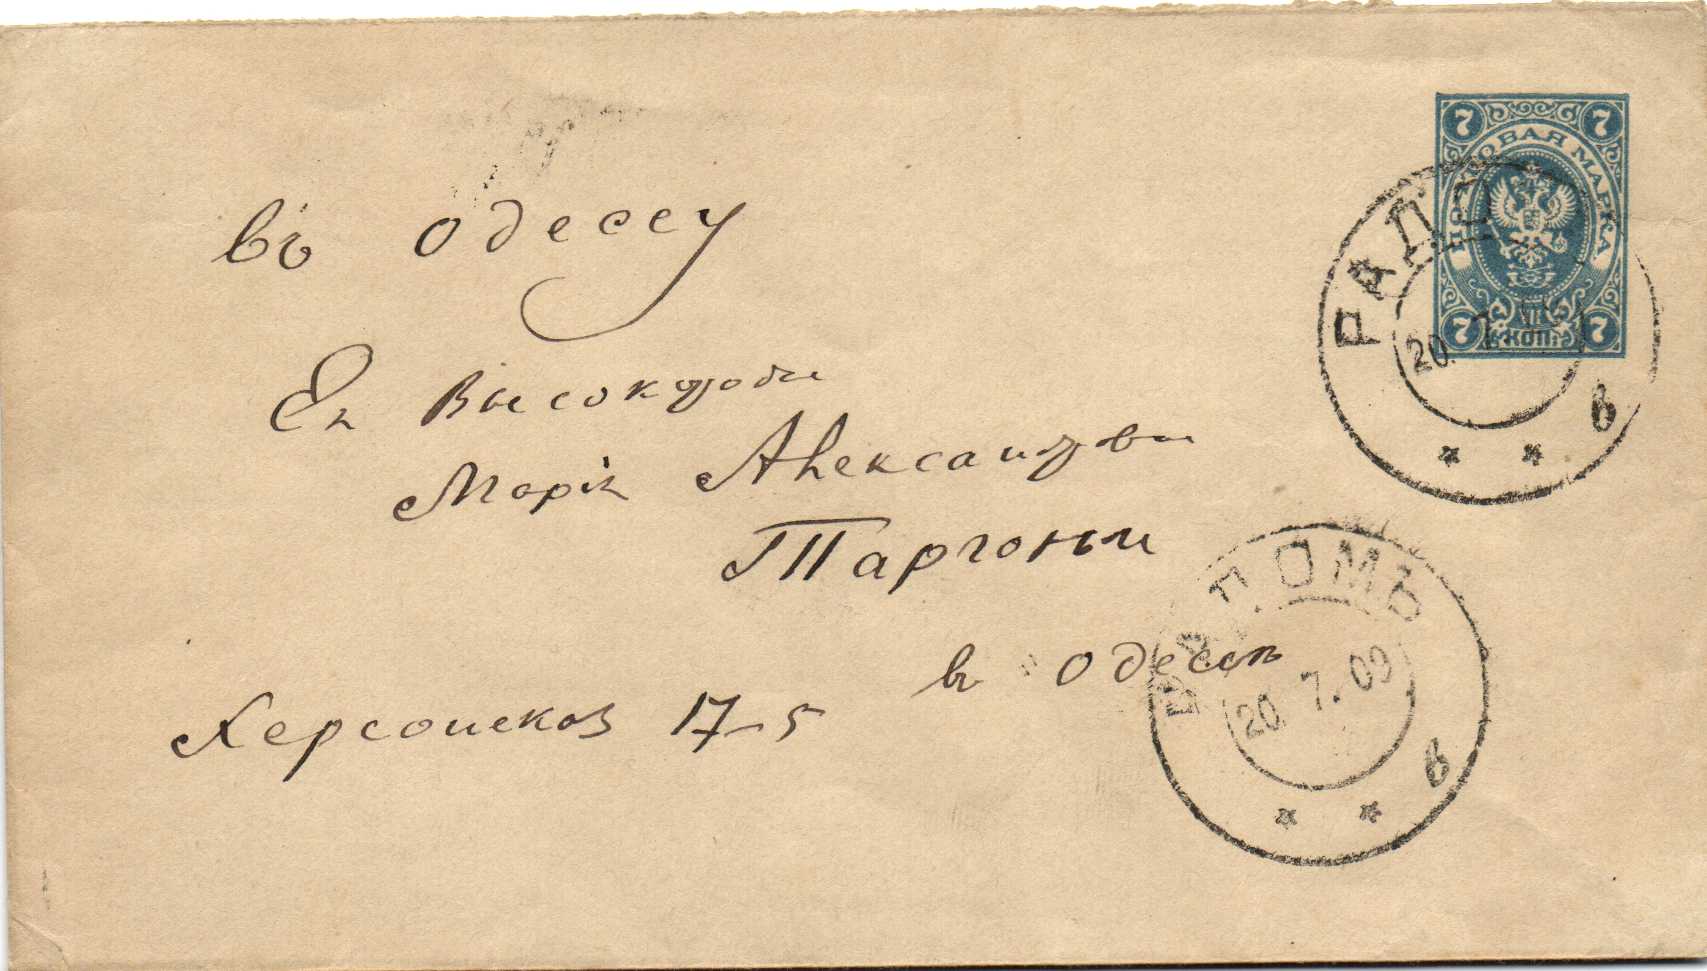 въ Одессу
Ея Высокородію
Маріи Александровнѣ
Таргоньи
въ Одессѣ
Херсонская 17-5
7 7
ПОЧТОВАЯ МАРКА
7 VII КОП. 7
РАДО
20. 7.
в
РАДОМЪ
20. 7. 09
в